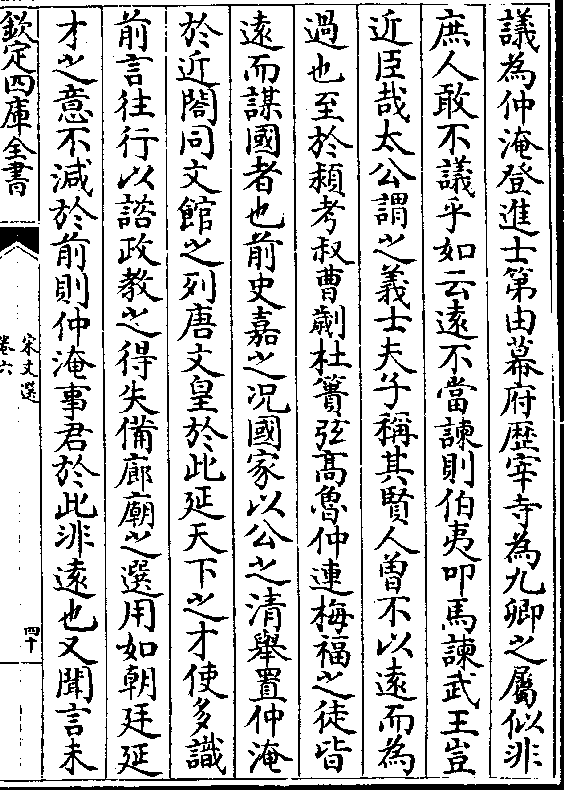 議為仲淹登進士第由幕府歴宰寺為九卿之屬似非
庶人敢不議乎如云遠不當諫則伯夷叩馬諫武王豈
近臣哉太公謂之義士夫子稱其賢人曽不以遠而為
過也至於潁考叔曹劌杜蕢弦高魯仲連梅福之徒皆
遠而謀國者也前史嘉之况國家以公之清舉置仲淹
於近閣同文館之列唐文皇於此延天下之才使多識
前言往行以諮政教之得失備廊廟之選用如朝廷延
才之意不減於前則仲淹事君於此非遠也又聞言未
欽定四庫全書
宋文選
卷六
四十